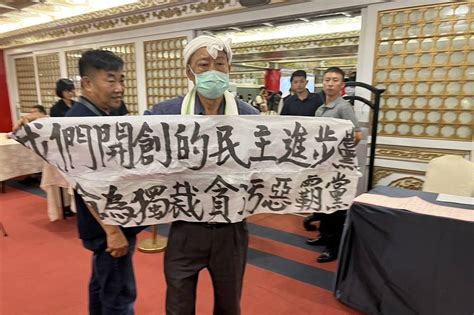 我們開創的民主進步黨
為獨裁貪污惡霸黨